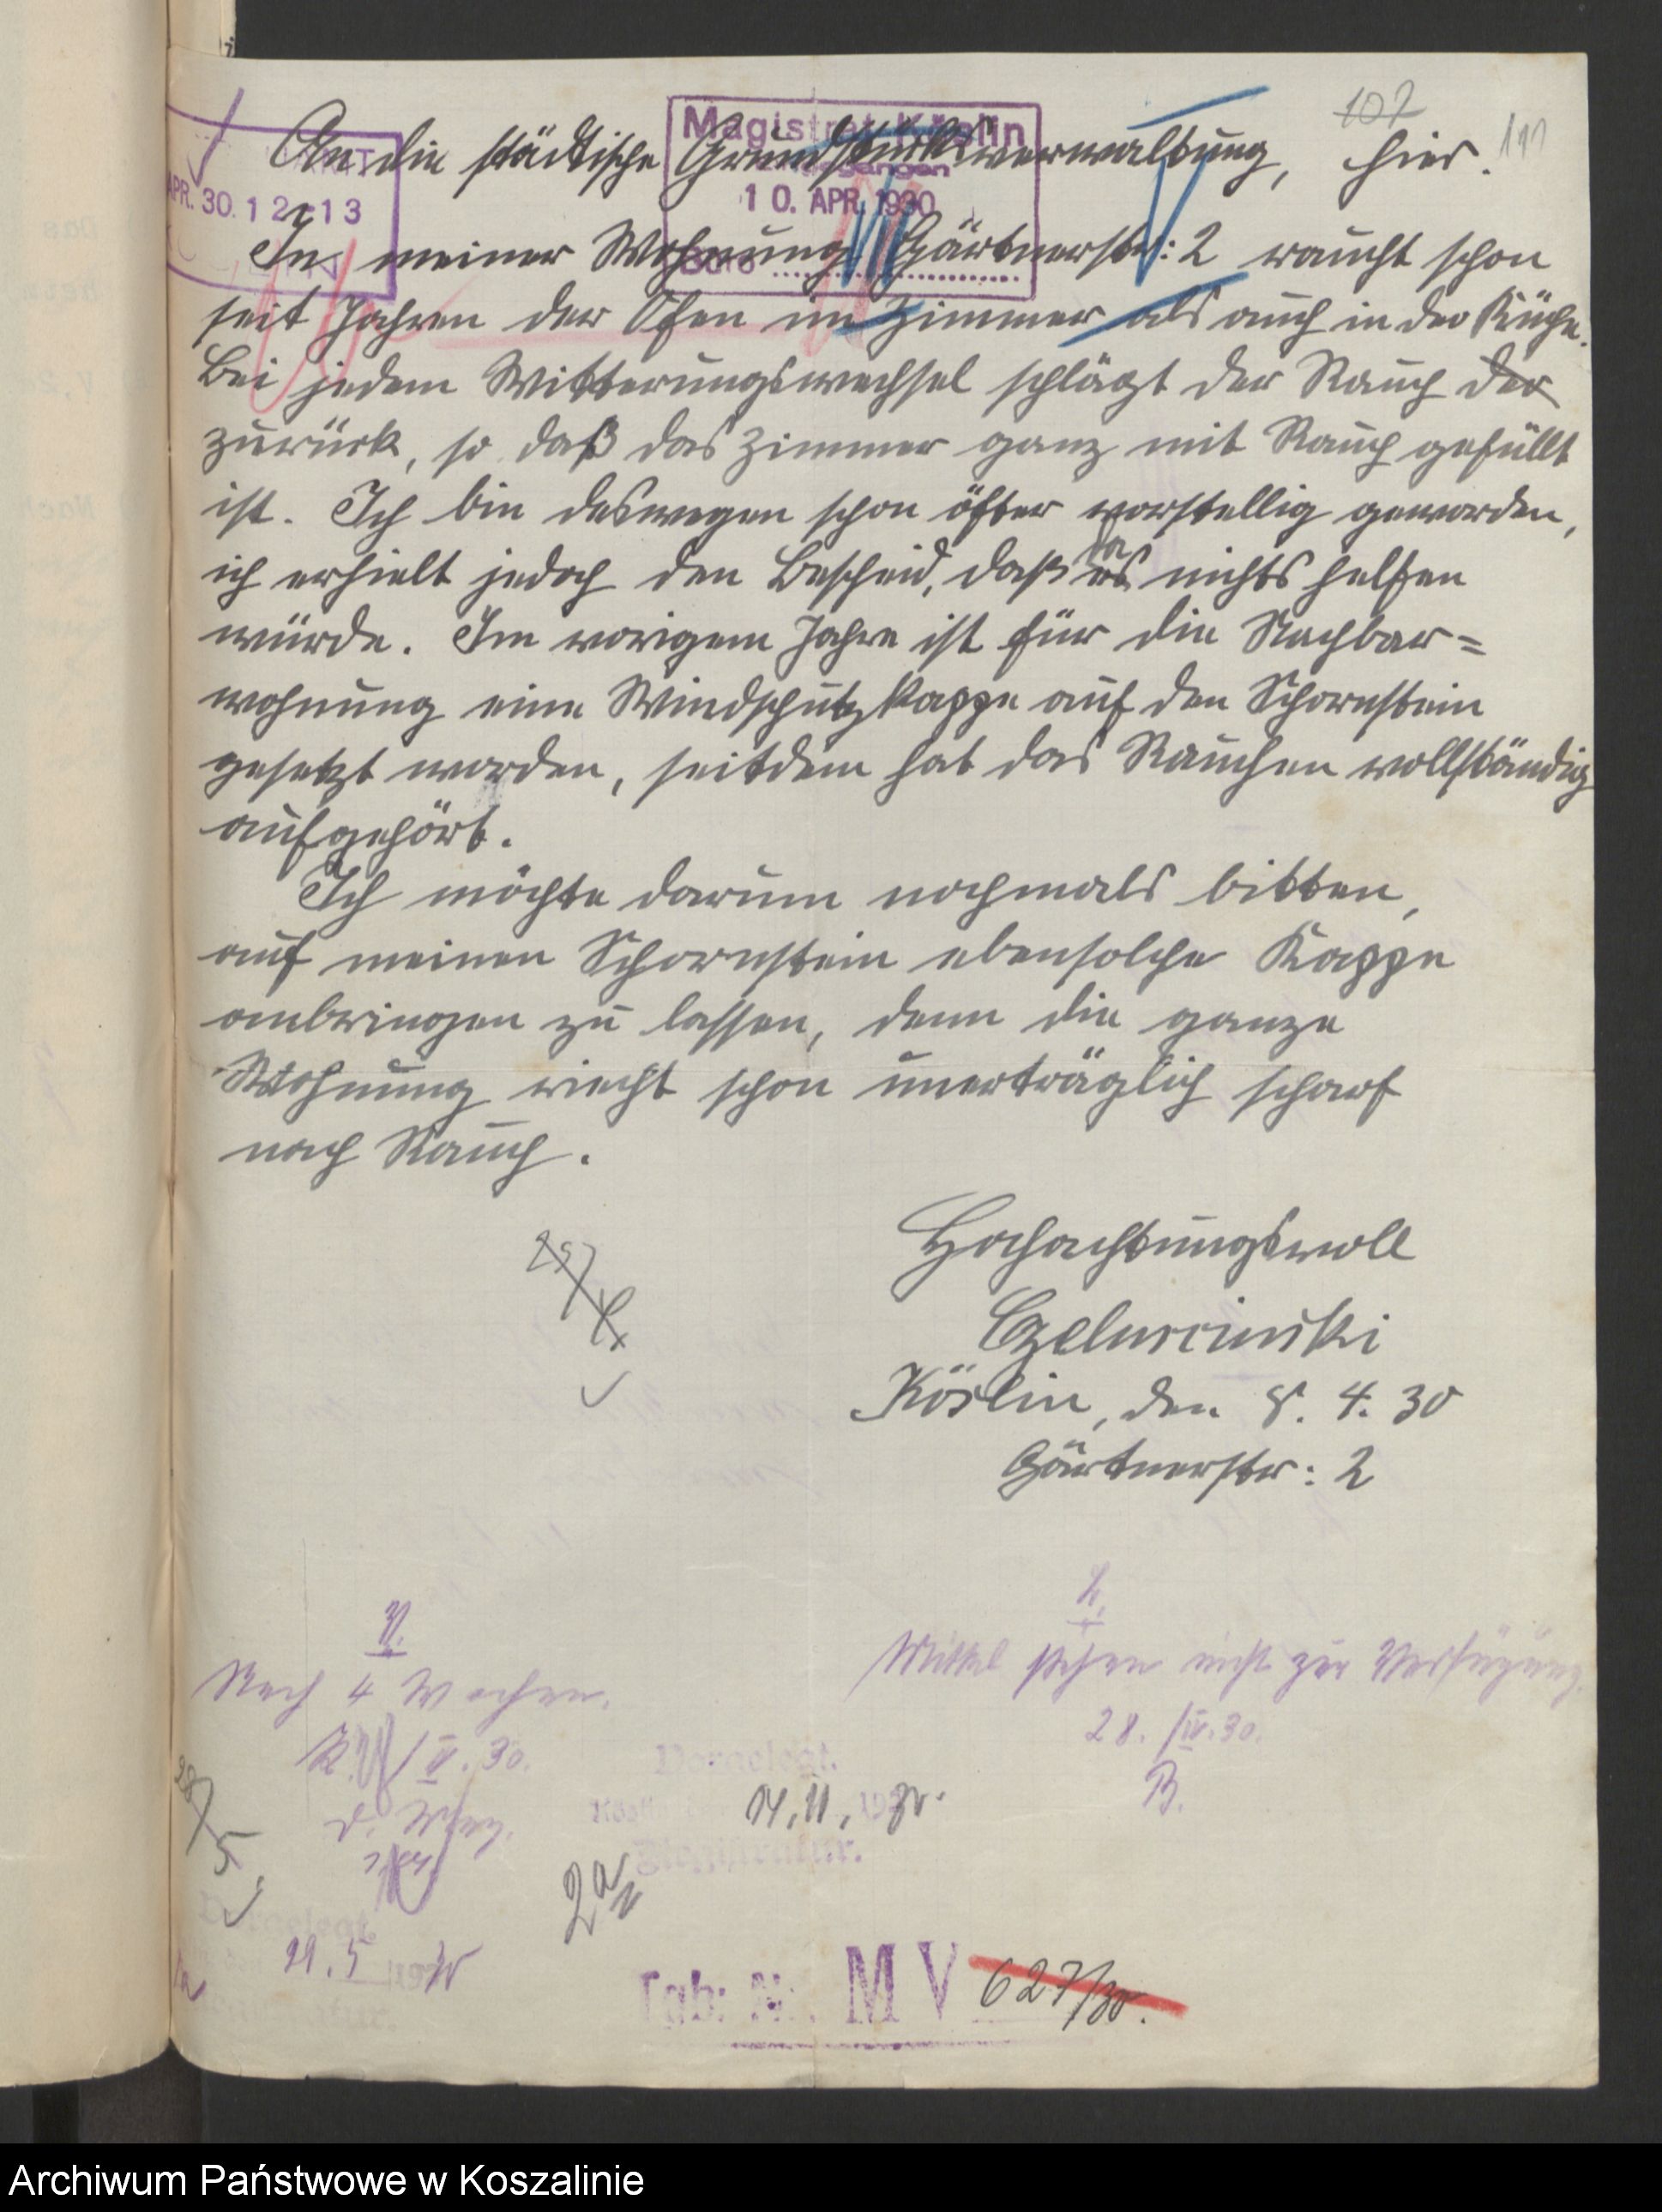 107
111
Magistrat Köslin
Eingegangen
10. APR. 1930
Büro
APR. 30. 12-13
An die städtische Grundstücksverwaltung, hier.
In meiner Wohnung Gärtnerstr: 2 raucht schon
seit Jahren der Ofen im Zimmer als auch in der Küche.
Bei jedem Witterungswechsel schlägt der Rauch der
zurück, so daß das Zimmer ganz mit Rauch gefüllt
ist. Ich bin deswegen schon öfter vorstellig geworden,
ich erhielt jedoch den Bescheid, daß es nichts helfen
würde. Im vorigem Jahre ist für die Nachbar=
wohnung eine Windschutzkappe auf den Schornstein
gesetzt worden, seitdem hat das Rauchen vollständig
aufgehört.
Ich möchte darum nochmals bitten,
auf meinen Schornstein ebensolche Kappe
anbringen zu lassen, denn die ganze
Wohnung riecht schon unerträglich scharf
nach Rauch.
Hochachtungsvoll
Köslin, den 8. 4. 30
Gärtnerstr: 2
V.
Nach 4 Wochen.
K. /IV. 30.
D. Mag.
28/5
Vorgelegt.
29. 5 1930
Mittel stehen nicht zur Verfügung.
28. /IV. 30.
B.
Vorgelegt.
Köslin 14. 11. 1930.
Registratur.
Tgb: Nr. M V 627/30.
Archiwum Państwowe w Koszalinie